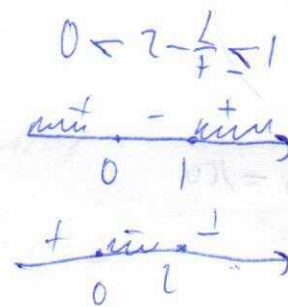 0 < 2 - 2/t ≤ 1
+ - +
0 1
+ - +
0 2